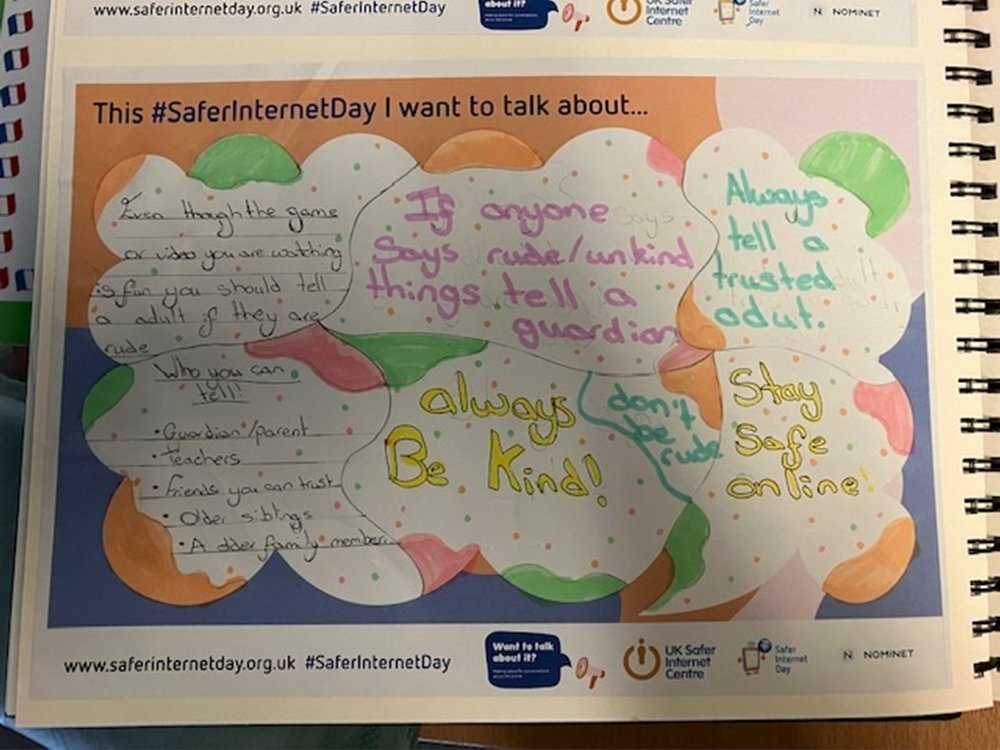 www.saferinternetday.org.uk #SaferInternetDay
about it?
UK Safer
Internet
Centre
Safer
Internet
Day
N NOMINET
This #SaferInternetDay I want to talk about...
Even though the game
or video you are watching
is fun you should tell
a adult if they are
rude
If anyone
Says rude/unkind
things tell a
guardian
Always
tell a
trusted
adut.
Who you can
tell!
• Guardian/parent
• Teachers
• Friends you can trust
• Older siblings
• A older family member
always
Be Kind!
don't
be
rude
Stay
Safe
online!
www.saferinternetday.org.uk #SaferInternetDay
Want to talk
about it?
UK Safer
Internet
Centre
Safer
Internet
Day
N NOMINET